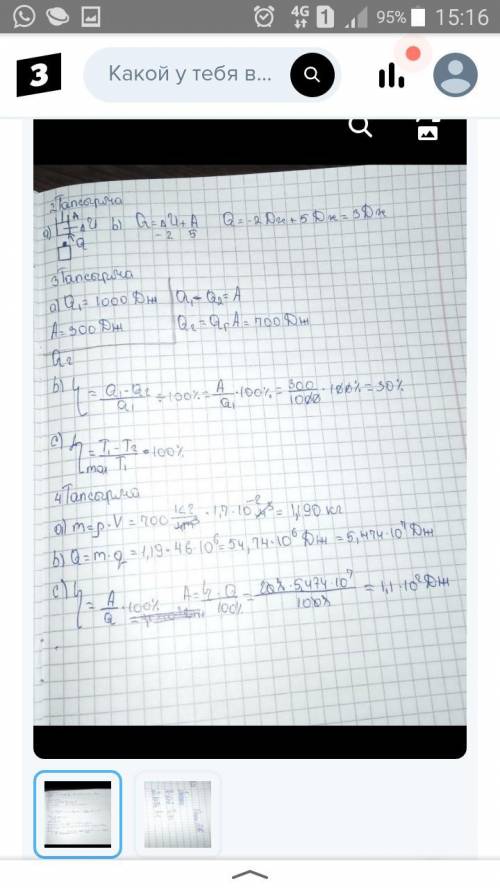 4G 1 95% 15:16
3 Какой у тебя в...
2 Тапсырма
a) A ΔU Q b) Q=ΔU+A Q=-2Дж+5Дж=3Дж
-2 5
3 Тапсырма
a) Q₁=1000 Дж Q₁-Q₂=A
A=300 Дж Q₂=Q₁-A=700Дж
Q₂
b) η = (Q₁-Q₂)/Q₁ · 100% = A/Q₁ · 100% = 300/1000 · 100% = 30%
c) η max = (T₁-T₂)/T₁ · 100%
4 Тапсырма
a) m=ρ·V=700 кг/м³ · 1,7·10⁻² м³ = 1,190 кг
b) Q=m·q=1,19·46·10⁶=54,74·10⁶ Дж=5,474·10⁷ Дж
c) η = A/Q · 100% A = η·Q/100% = 20%·5,474·10⁷/100% = 1,1·10² Дж